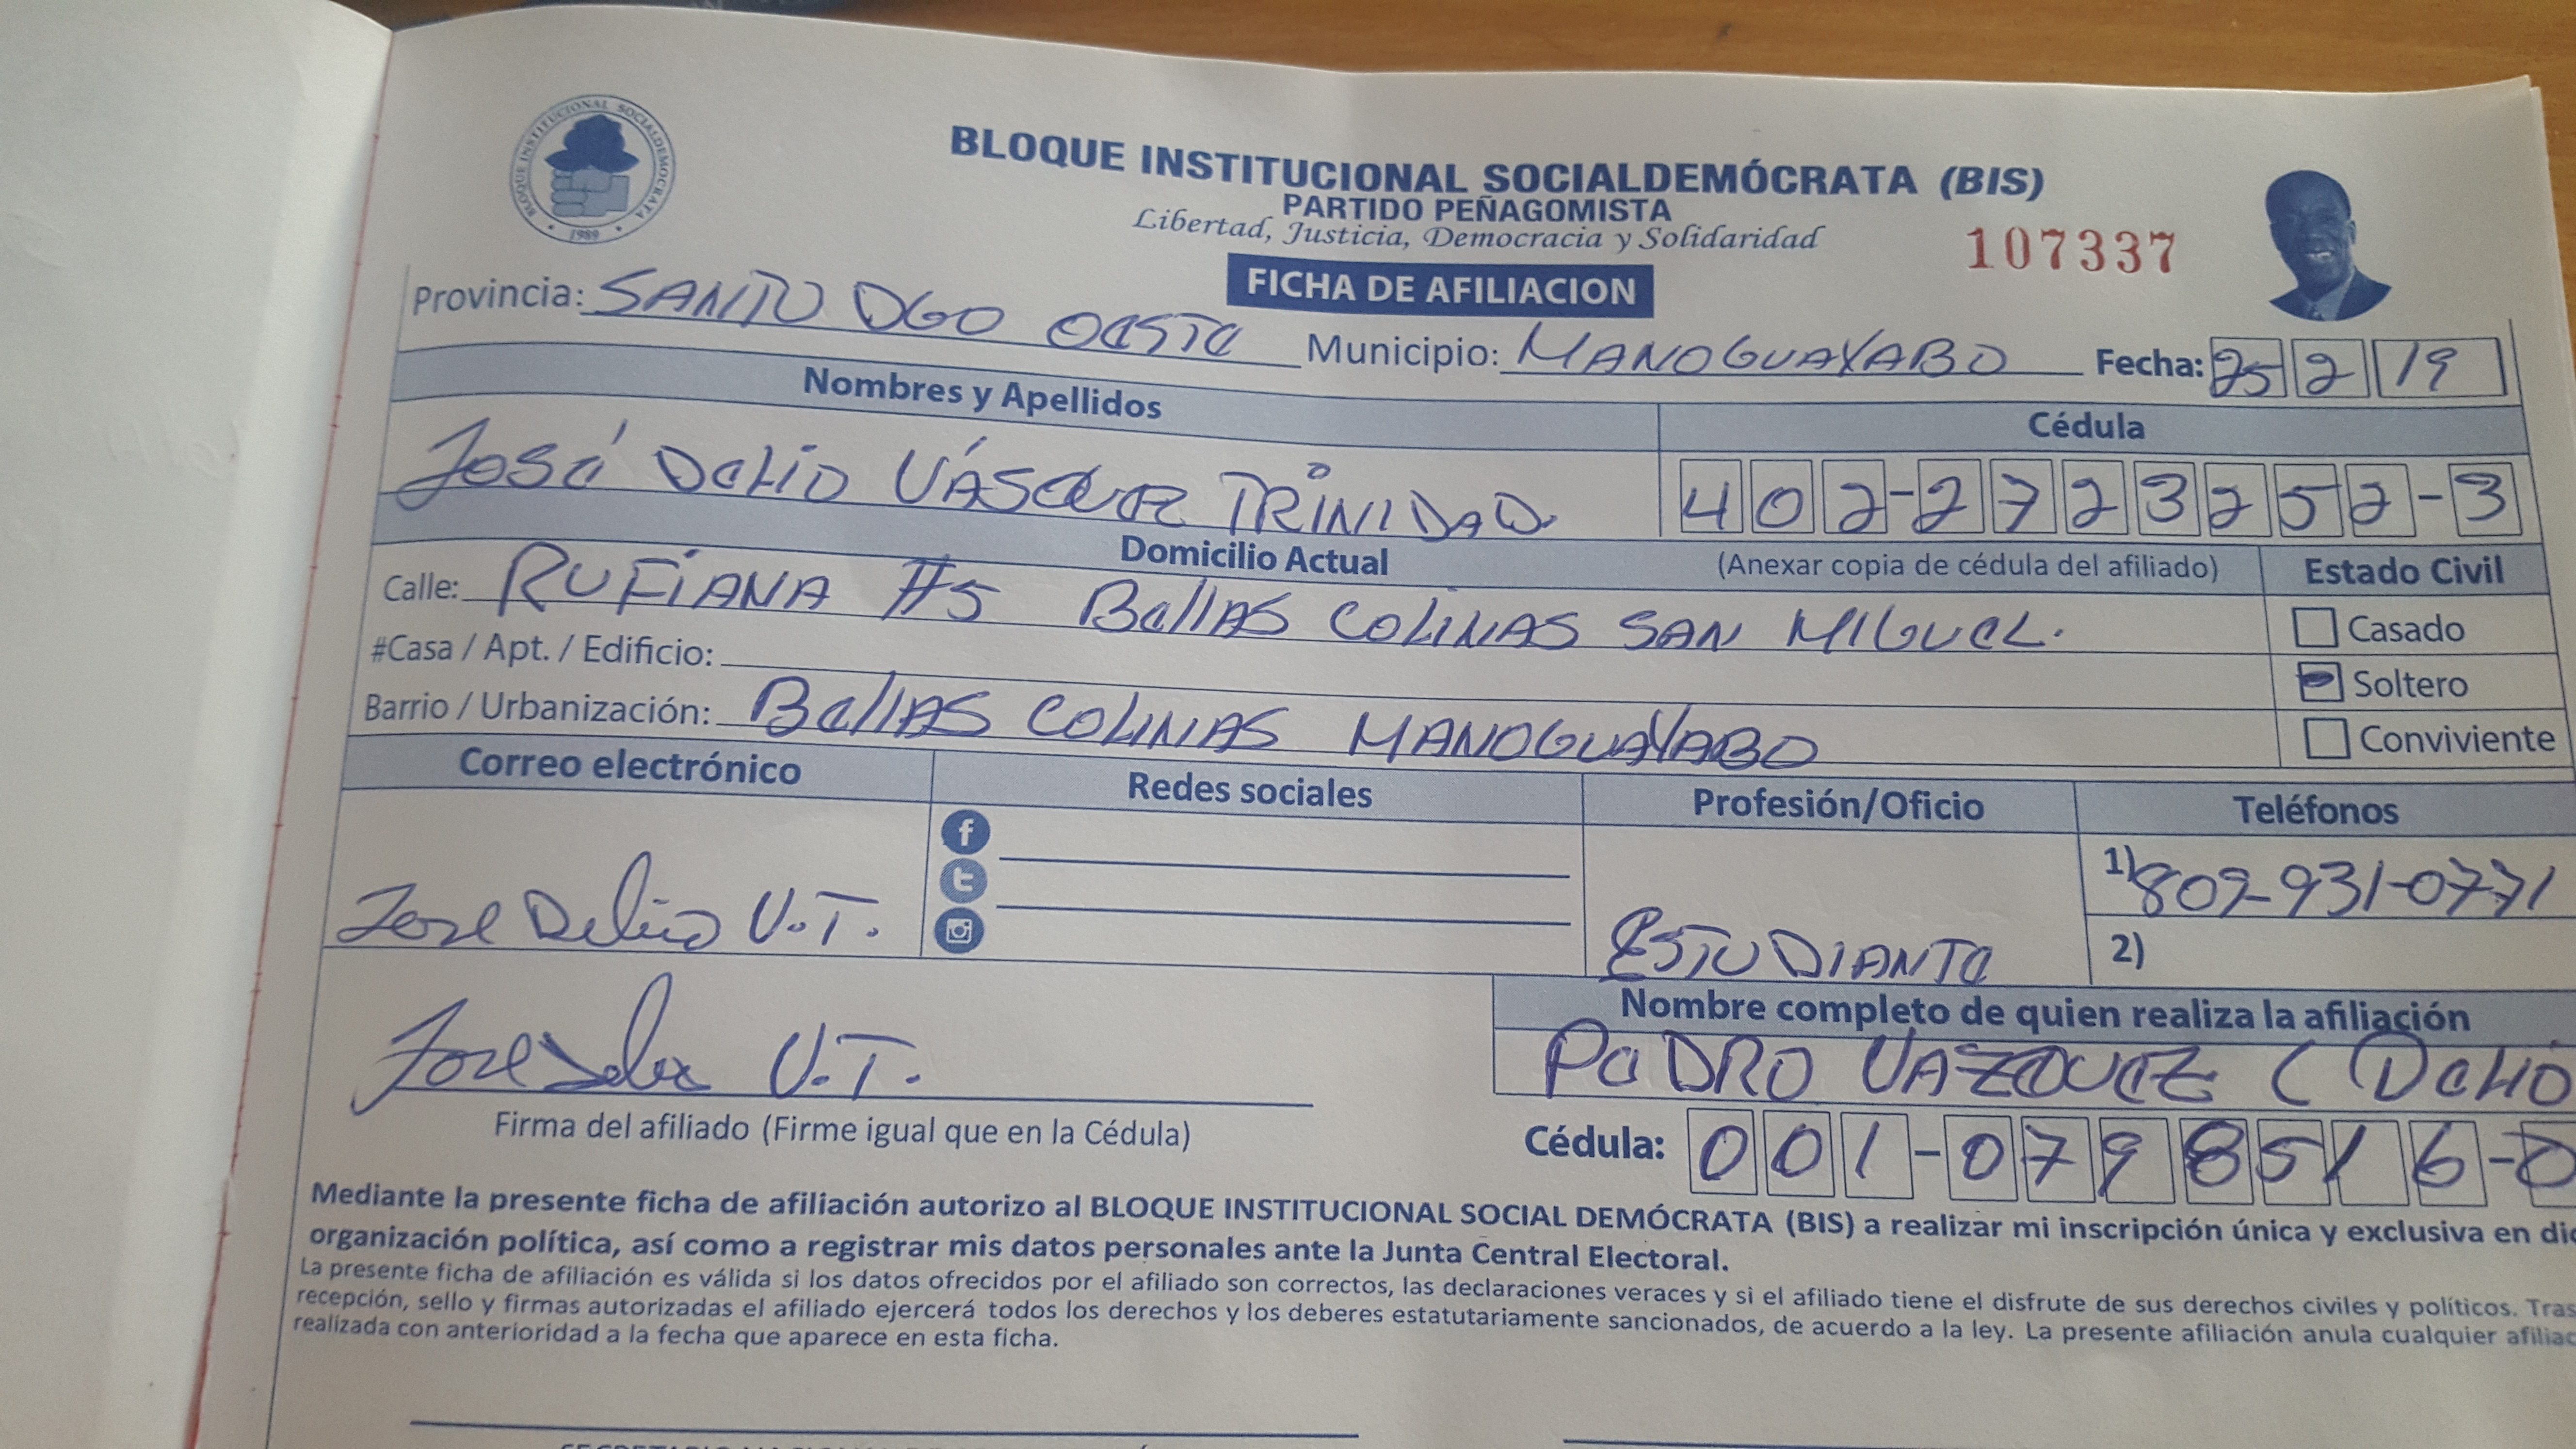 BLOQUE INSTITUCIONAL SOCIALDEMOCRATA
1989
BLOQUE INSTITUCIONAL SOCIALDEMÓCRATA (BIS)
PARTIDO PEÑAGOMISTA
Libertad, Justicia, Democracia y Solidaridad
107337
FICHA DE AFILIACION
Provincia: SANTO DGO OESTE Municipio: MANOGUAYABO Fecha: 25 2 19
Nombres y Apellidos
Cédula
José Delio VÁSQUEZ TRINIDAD. 402-2723252-3
Domicilio Actual (Anexar copia de cédula del afiliado) Estado Civil
Calle: RUFIANA #5 Bellas COLINAS SAN MIGUEL.
Casado
#Casa / Apt. / Edificio:
Soltero
Barrio / Urbanización: BellAS COLINAS MANOGUAYABO
Conviviente
Correo electrónico Redes sociales Profesión/Oficio Teléfonos
1) 809-931-0771
Jose Delio V.T. ESTUDIANTE
2)
Nombre completo de quien realiza la afiliación
Jose Delio V.T. PEDRO VAZQUEZ ( DELIO
Firma del afiliado (Firme igual que en la Cédula)
Cédula: 001-0798516-0
Mediante la presente ficha de afiliación autorizo al BLOQUE INSTITUCIONAL SOCIAL DEMÓCRATA (BIS) a realizar mi inscripción única y exclusiva en dic
organización política, así como a registrar mis datos personales ante la Junta Central Electoral.
La presente ficha de afiliación es válida si los datos ofrecidos por el afiliado son correctos, las declaraciones veraces y si el afiliado tiene el disfrute de sus derechos civiles y políticos. Tras
recepción, sello y firmas autorizadas el afiliado ejercerá todos los derechos y los deberes estatutariamente sancionados, de acuerdo a la ley. La presente afiliación anula cualquier afiliac
realizada con anterioridad a la fecha que aparece en esta ficha.